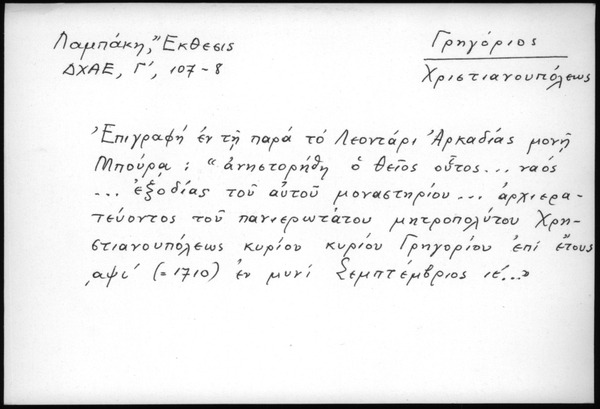 Λαμπάκη, "Έκθεσις
ΔΧΑΕ, Γ', 107-8
Γρηγόριος
Χριστιανουπόλεως
Ἐπιγραφή ἐν τῇ παρά τό Λεοντάρι Ἀρκαδίας μονῇ
Μπούρα : "ἀνηστορήθη ὁ θεῖος οὗτος... ναός
... ἐξοδίας τοῦ αὐτοῦ μοναστηρίου... ἀρχιερα-
τεύοντος τοῦ πανιερωτάτου μητροπολύτου Χρη-
στιανουπόλεως κυρίου κυρίου Γρηγορίου ἐπί ἔτους
͵αψι' (=1710) ἐν μυνί Σεμπτέμβριος ιέ...»